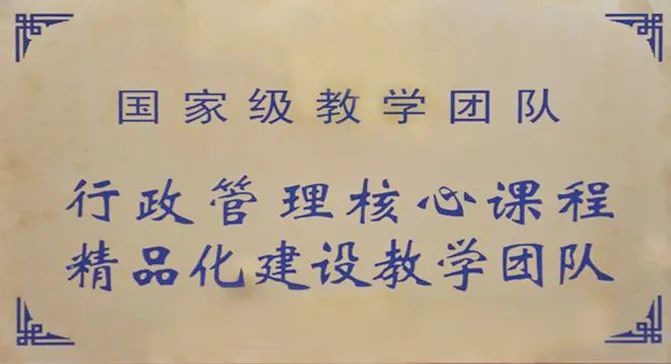 国家级教学团队
行政管理核心课程
精品化建设教学团队